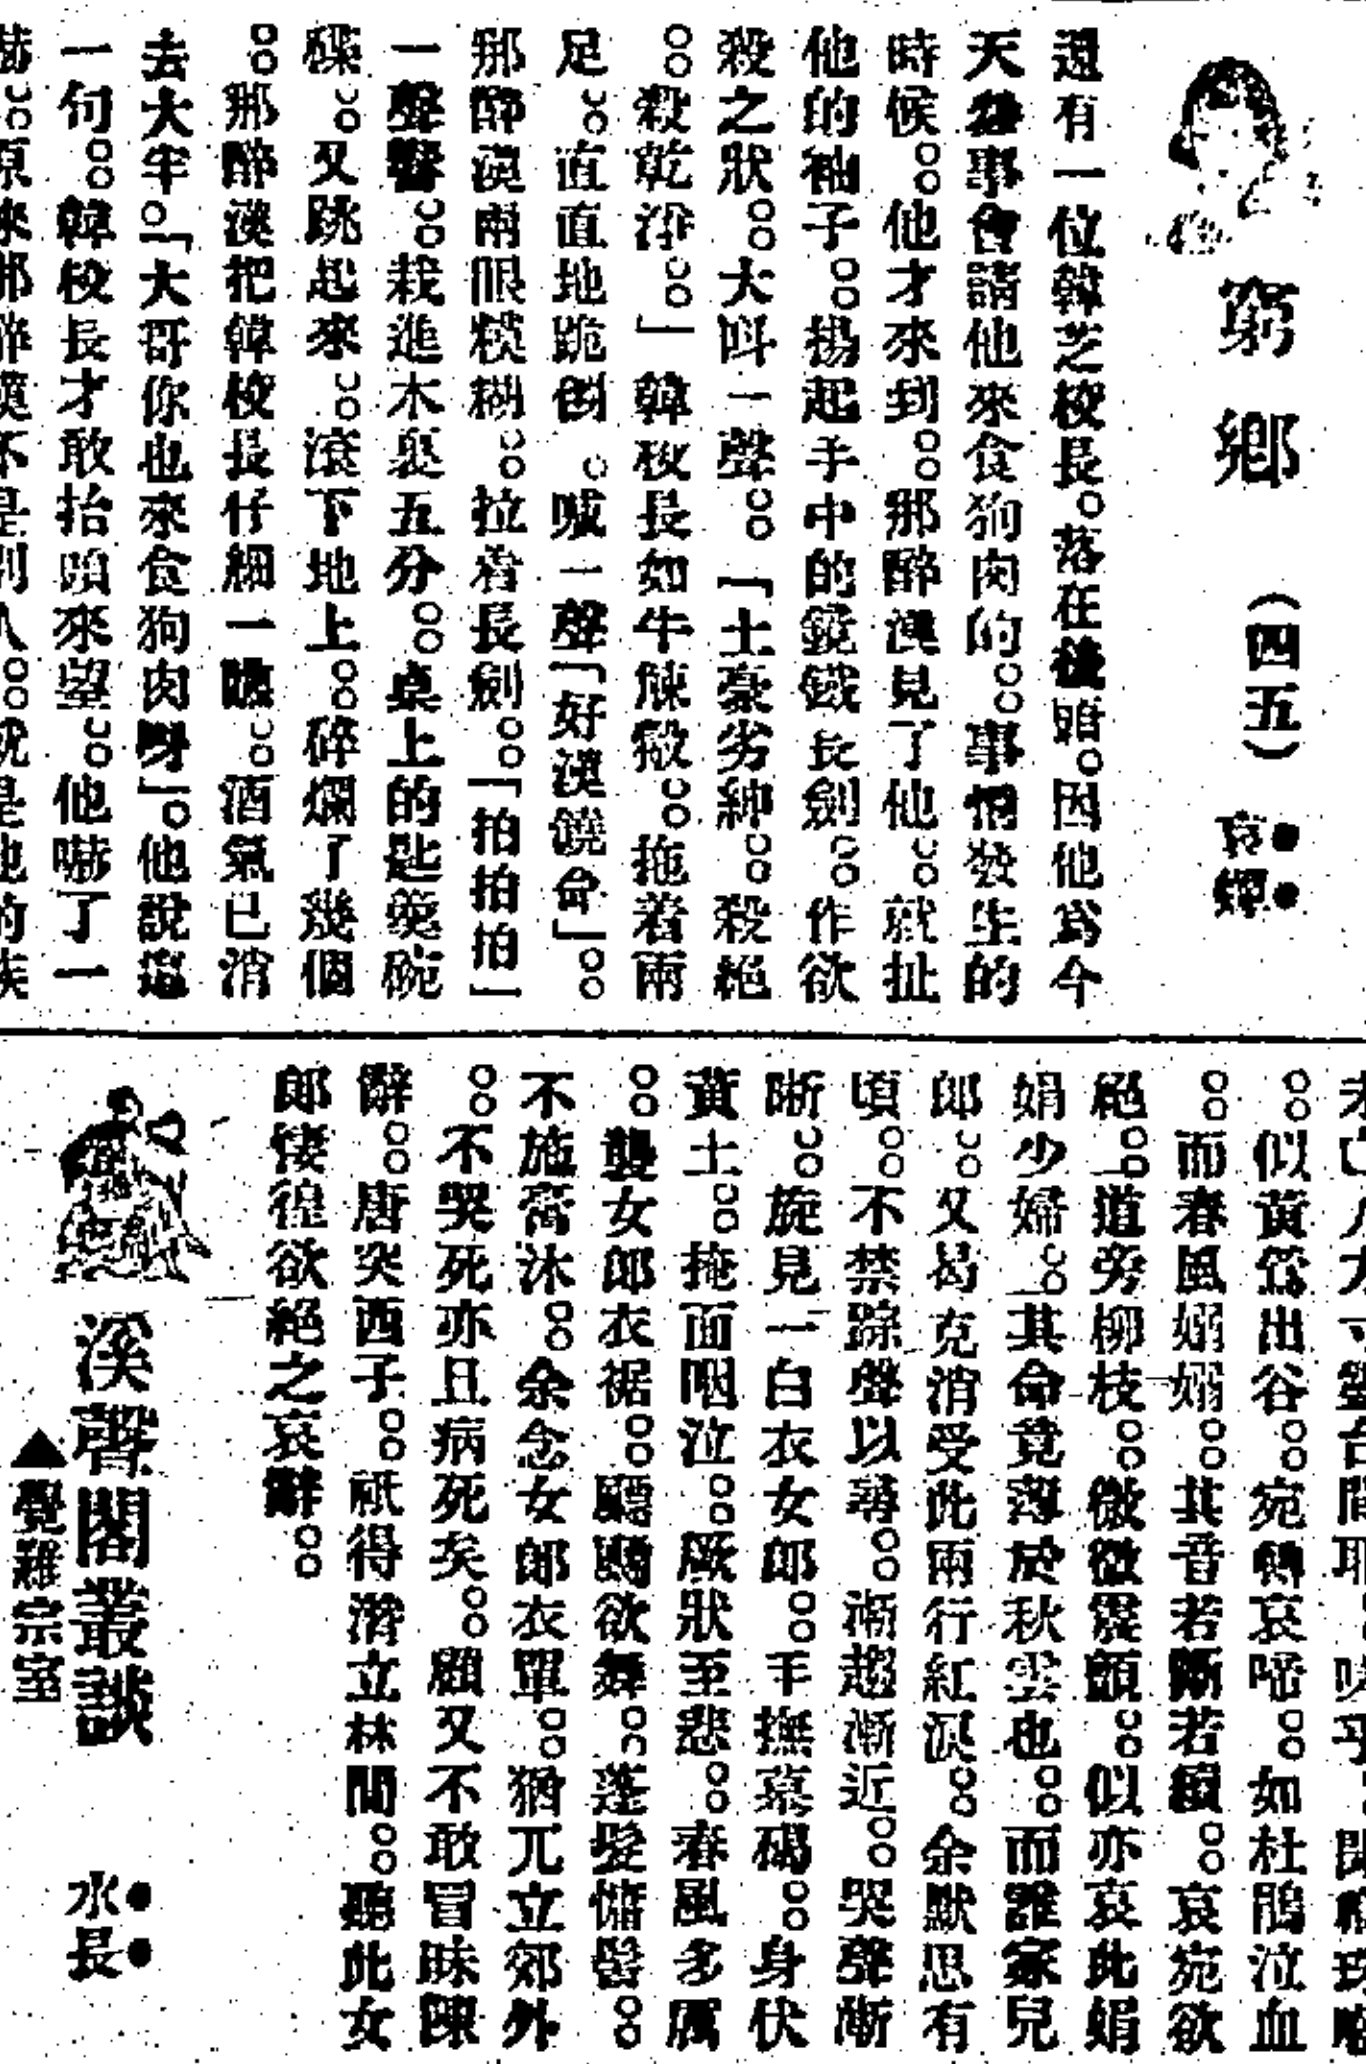 窮鄉
（四五）
哀蟬
還有一位韓芝校長。落在後頭。因他爲今
天公事會請他來食狗肉的。。事情發生的
時候。。他才來到。。那醉漢見了他。。就扯
他的袖子。。揚起手中的鏡鐵長劍。。作欲
殺之狀。。大呌一聲。。「土豪劣紳。。殺絕
。。殺乾淨。。」韓校長如牛觫觳。。拖着兩
足。。直直地跪倒。喊一聲「好漢饒命」。。
那醉漢兩眼糢糊。。拉着長劍。。「拍拍拍」
一聲響。。栽進木裏五分。。桌上的匙羹碗
碟。。又跳起來。。滾下地上。。碎爛了幾個
。。那醉漢把韓校長仔細一瞧。。酒氣已消
去大半。「大哥你也來食狗肉呀」。他說這
一句。。韓校長才敢抬頭來望。。他嚇了一
原來那醉漢不是別人。。就是他的族
。。似黃鶯出谷。。宛轉哀啼。。如杜鵑泣血
。。而春風嫋嫋。。其音若斷若續。。哀宛欲
絕。。道旁柳枝。。微微震顫。。似亦哀此娟
娟少婦。。其命竟薄於秋雲也。。而誰家兒
郎。。又曷克消受此兩行紅淚。。余默思有
頃。。不禁踪聲以尋。。漸趨漸近。。哭聲漸
晰。。旋見一白衣女郎。。手撫墓碣。。身伏
黃土。。掩面咽泣。。厥狀至悲。。春風多厲
。。襲女郎衣裾。。飃飃欲舞。。蓬髮慵髻。。
不施膏沐。。余念女郎衣單。。猶兀立郊外
。。不哭死亦且病死矣。。顧又不敢冒昧陳
辭。。唐突西子。。祇得潛立林間。。聽此女
郎悽徨欲絕之哀辭。。
溪聲閣叢談
水長
▲覺難宗室